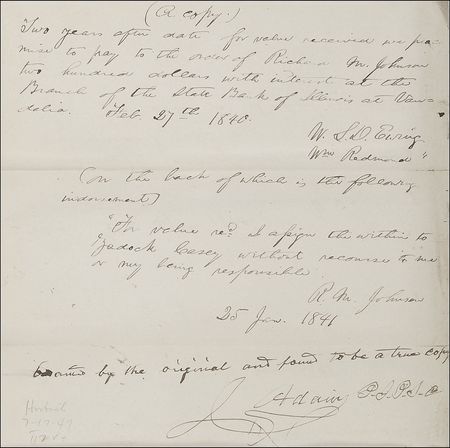 (A copy.)
"Two years after date for value received we pro-
mise to pay to the order of Richard M. Johnson
two hundred dollars with interest at the
Branch of the State Bank of Illinois at Van-
dalia. Feb. 27th 1840.
W. L. D. Ewing
Wm Redmond"
(on the back of which is the following
indorsement)
"For value recd I assign the within to
Zadock Casey without recourse to me
or my being responsible
R. M. Johnson
25 Jan. 1841
by the original and found to be a true copy
J. Adair
7-17-47